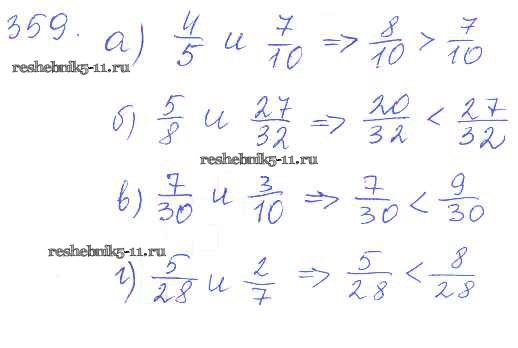 359. а) 4/5 и 7/10 => 8/10 > 7/10
reshebnik5-11.ru
б) 5/8 и 27/32 => 20/32 < 27/32
reshebnik5-11.ru
в) 7/30 и 3/10 => 7/30 < 9/30
reshebnik5-11.ru
г) 5/28 и 2/7 => 5/28 < 8/28